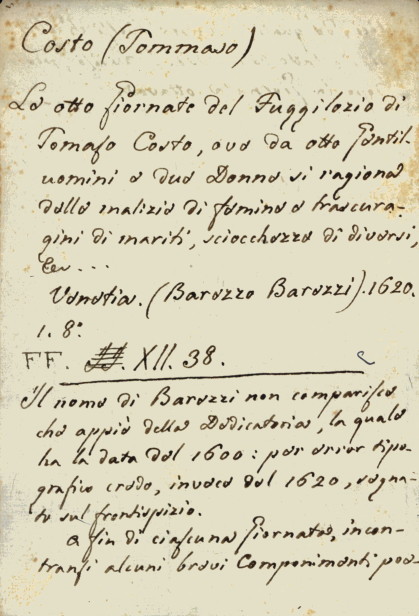 Costo (Tommaso)
Le otto Giornate del Fuggilozio di
Tomaso Costo, ove da otto Gentil-
uomini e due Donne si ragiona
delle malizie di femine e trascura-
gini di mariti, sciocchezze di diversi,
&c...
Venetia. (Barezzo Barezzi). 1620.
1. 8º.
FF. XII. 38.
Il nome di Barezzi non comparisce
che appiè della Dedicatoria, la quale
ha la data del 1600: per error tipo-
grafico credo, invece del 1620, segna-
to sul frontispizio.
A fin di ciascuna Giornata, incon-
transi alcuni brevi Componimenti poe-